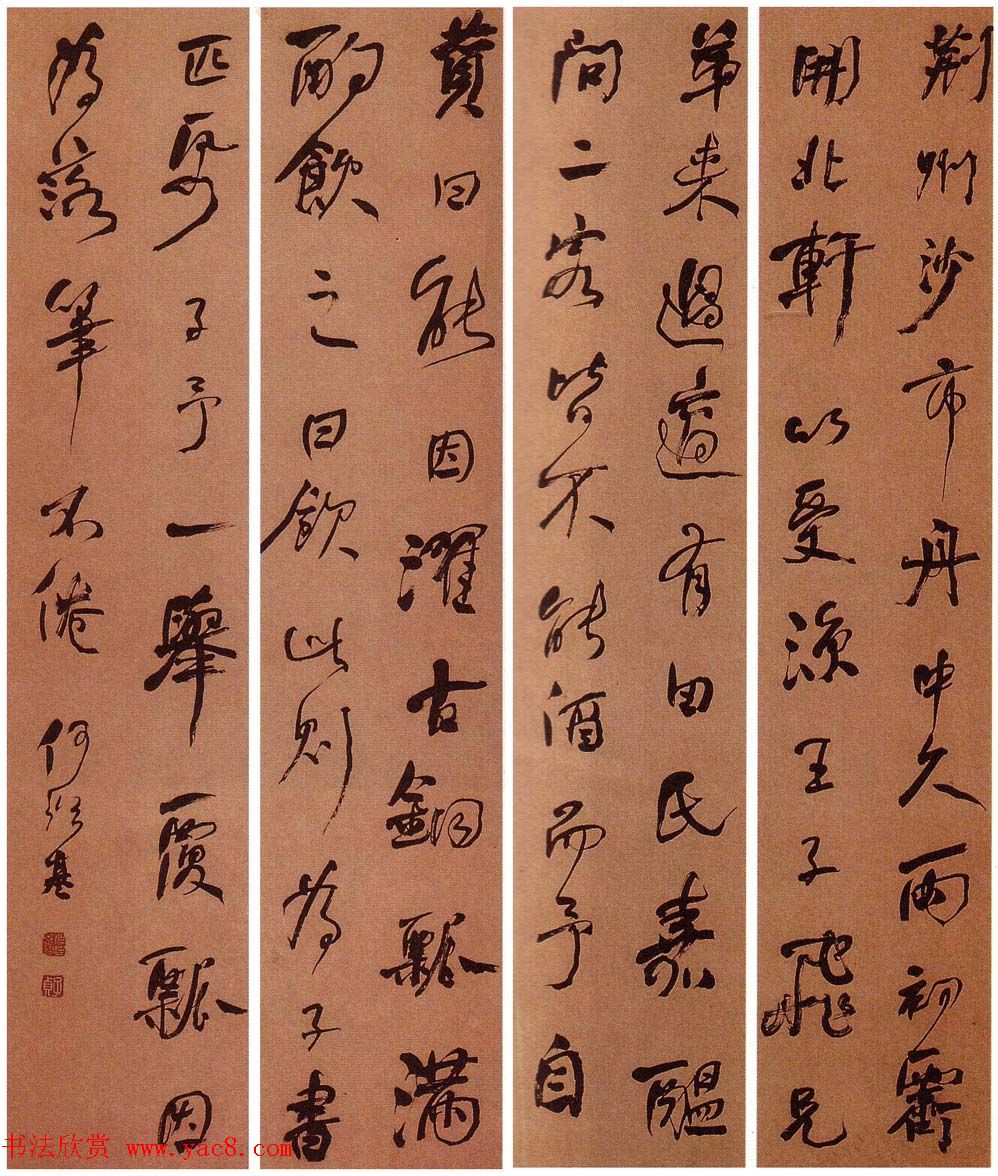 荆州沙市舟中久雨初霽
開北軒以受涼王子飛兄
弟来過適有田氏嘉醖
問二客皆不能酒而予自
曰能因濯古銅瓢滿
酌飲之曰飲此則為子書
匹帋子予一舉覆瓢因
為落筆不倦 何紹基
书法欣赏 www.yac8.com